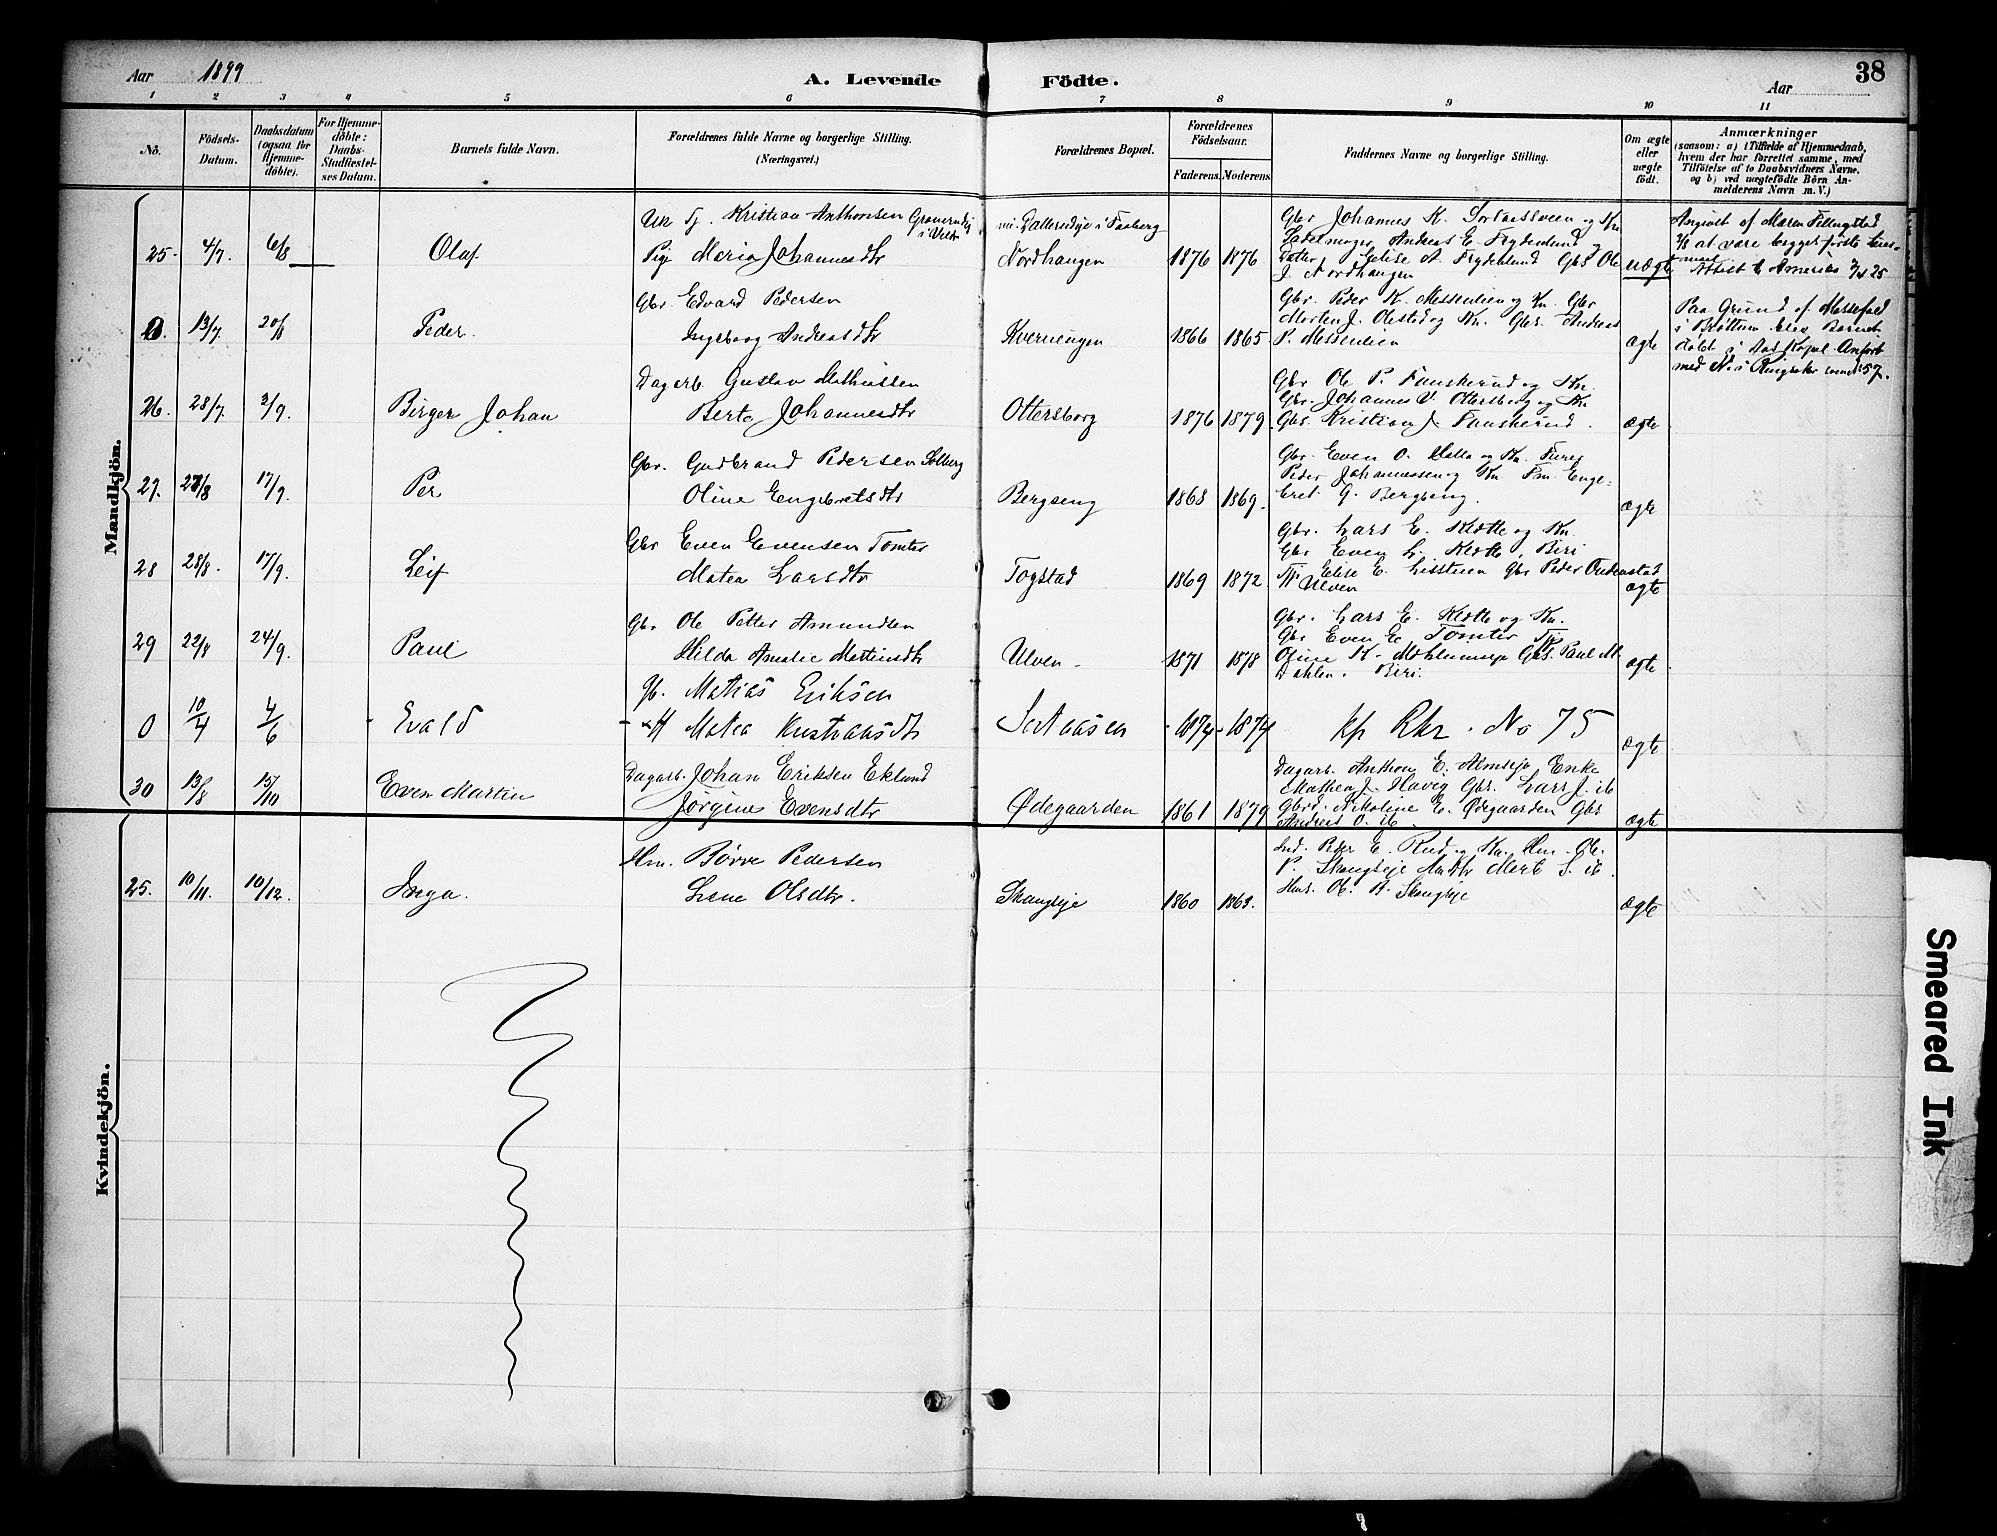 Aar 1899
A. Levende Födte.
Aar
38
1 2 3 4 5 6 7 8 9 10 11
Nô.
Födsels-Datum.
Daabsdatum (ogsaa for Hjemme-döbte).
For Hjemme-döbte: Daabs-Stadfæstel-ses Datum.
Barnets fulde Navn.
Forældrenes fulde Navne og borgerlige Stilling.
(Næringsvei.)
Forældrenes Bopæl.
Forældrenes Födselsaar.
Faderens. Moderens.
Faddernes Navne og borgerlige Stilling.
Om ægte eller uægte födt.
Anmærkninger
(saasom: a) i Tilfælde af Hjemmedaab,
hvem der har forrettet samme, med
Tilföielse af to Daabsvidners Navne,
og b) ved uægtefödte Börn An-
melderens Navn m. V.)
Mandkjön.
25. 4/7. 6/8 Olaf
Kristian Anthonsen
Pige Maria Johannesdtr
Nordhangen 1876 1876
Gbr Johannes K. og Kn
Andreas E. Frydenlund og
Datter A. Frydenlund Gbs Ole
J. Nordhangen
uægte
Angivet af Maren
at være begges første
Amerika
0. 13/7 20/8 Peder.
Gbr. Edvard Pedersen
Ingeborg Andreasdtr
Kvernengen 1866 1865
Gbr. Peder K. Messenlien og Kn. Gbr
Morten J. Olestad og Kn. Gbs. Andreas
P. Messenlien
ægte
Paa Grund af Messefald
i Brøttum blev Barnet
døbt i Kapel. Anført
med No i Ringsaker 57.
26. 28/7 3/9. Birger Johan
Dagarb. Gustav Mathisen
Berte Johannesdtr
Ottersborg 1876 1879
Gbr Ole P. Fauskerud og Kn.
Gbr. Johannes Ottersborg og Kn
Gbs. Kristian J Fauskerud.
ægte
27. 27/8 17/9. Per
Gbr. Gudbrand Pedersen Solberg
Oline Engebretsdtr
Bergseng 1868 1869.
Gbr. Even O. og Kn.
Peder Johannessen og Kn Fm. Enge-
bret G. Bergseng.
ægte
28 28/8. 17/9. Leif
Gbr Even Evensen Tomter
Matea Larsdtr
Togstad 1869 1872
Gbr. Lars E. Klætte og Kn.
Gbr Even L. Klætte, Biri
Elise E. Gbr Peder
Ulven
ægte
29 22/8 24/9. Paul
Gbr Ole Petter Amundsen
Hilda Amalie Martinsdtr
Ulven. 1871 1878
Gbr. Lars E. Klætte og Kn.
Gbr Even E. Tomter
Oline K. Gbs. Paul M.
Dahlen. Biri.
ægte
0 10/4 4/6 Evald
Gb. Matias Eriksen
Matea Kristiansdtr
1874 1874
kp Rkr. No 75
ægte
30 13/8 15/10 Even Martin
Dagarb. Johan Eriksen Eklund
Jørgine Evensdtr
Ødegaarden 1861 1879
Dagarb. Anthon E. Enke
Mathea J. Gbs. Lars J. ib
Nikoline E. Ødegaarden Gbs
Andreas O. ib
ægte
Kvindekjön.
25. 10/11. 10/12. Inga.
Hm. Børre Pedersen
Lene Olsdtr.
Skangseje 1860 1863.
Ind. Peder E. Rud og Kn. Hm. Ole
P. Skangseje Marit S. ib.
Hm. Ole A. Skangseje
ægte
Smeared Ink